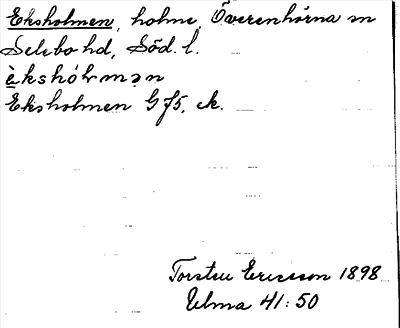 Eksholmen, holme, Överenhörna sn
Selebo hd, Söd. l.
èkshól̵mən
Eksholmen Gf5, ek.
Torsten Ericsson 1898
Ulma 41:50